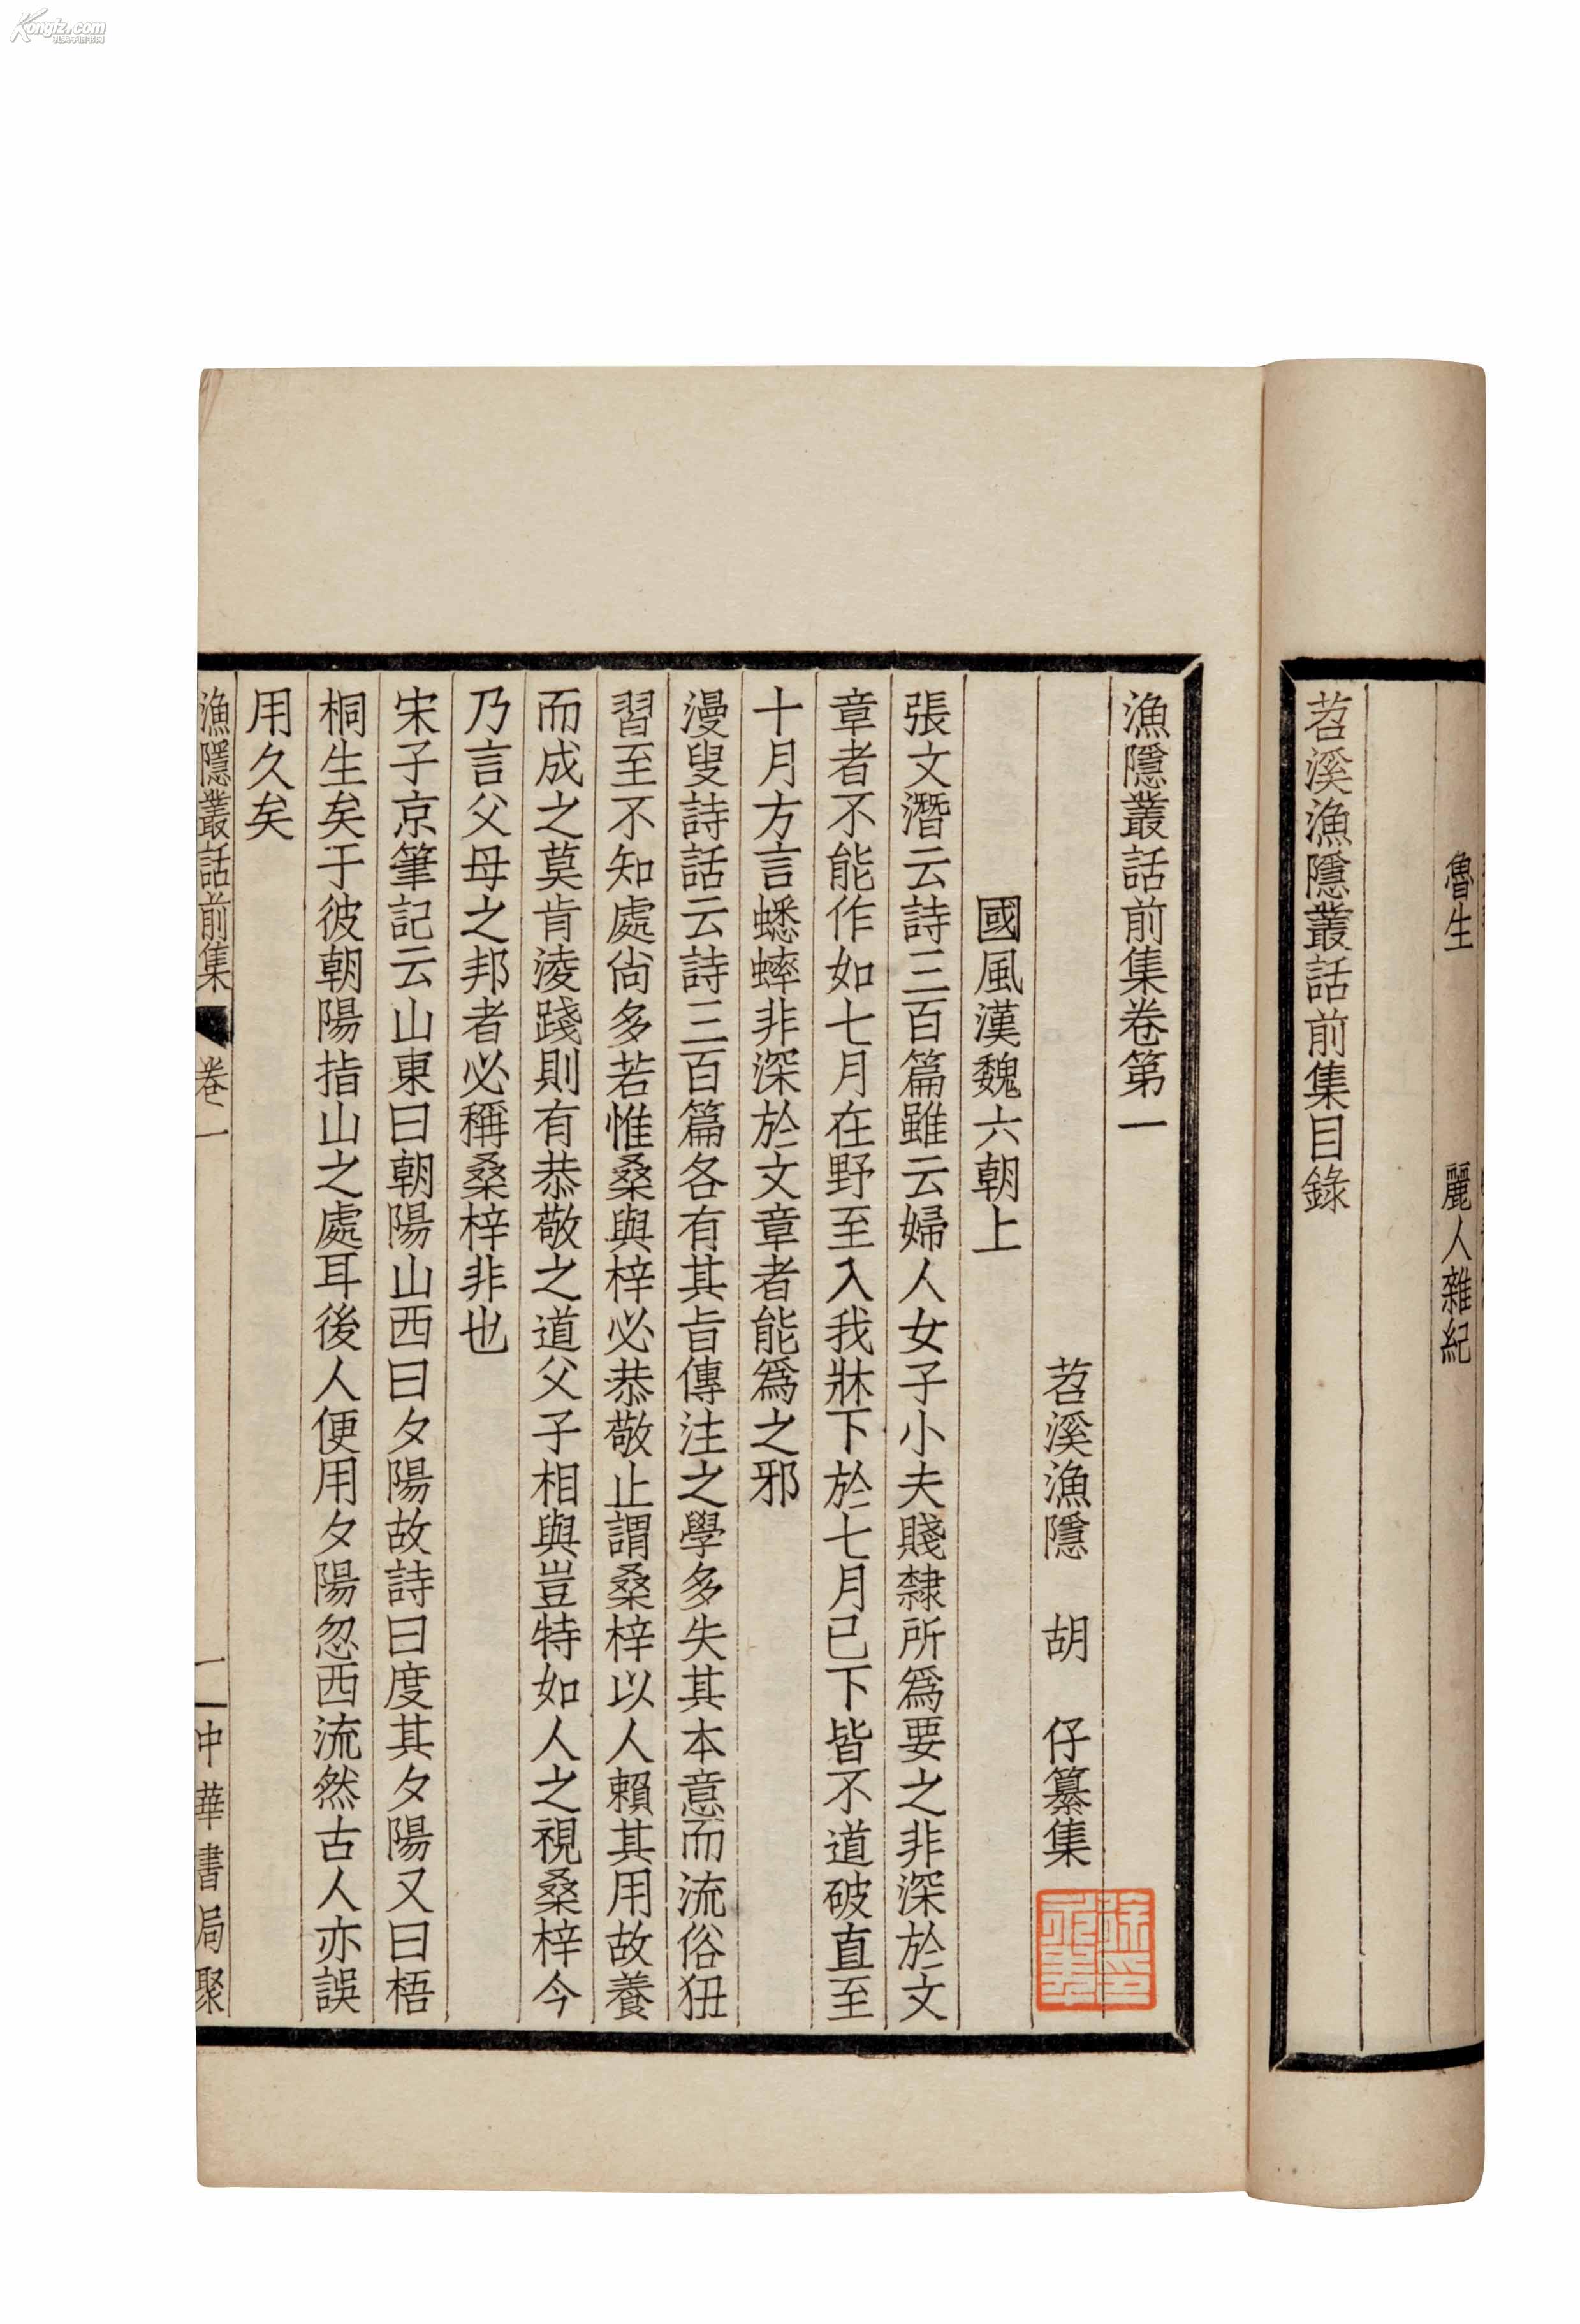 Kongfz.com
孔夫子旧书网
魯生　麗人雜紀
苕溪漁隱叢話前集目錄
漁隱叢話前集卷第一
苕溪漁隱　胡　仔纂集
國風漢魏六朝上
張文潛云詩三百篇雖云婦人女子小夫賤隸所爲要之非深於文
章者不能作如七月在野至入我牀下於七月已下皆不道破直至
十月方言蟋蟀非深於文章者能爲之邪
漫叟詩話云詩三百篇各有其旨傳注之學多失其本意而流俗狃
習至不知處尙多若惟桑與梓必恭敬止謂桑梓以人賴其用故養
而成之莫肯淩踐則有恭敬之道父子相與豈特如人之視桑梓今
乃言父母之邦者必稱桑梓非也
宋子京筆記云山東曰朝陽山西曰夕陽故詩曰度其夕陽又曰梧
桐生矣于彼朝陽指山之處耳後人便用夕陽忽西流然古人亦誤
用久矣
漁隱叢話前集　卷一　一　中華書局聚